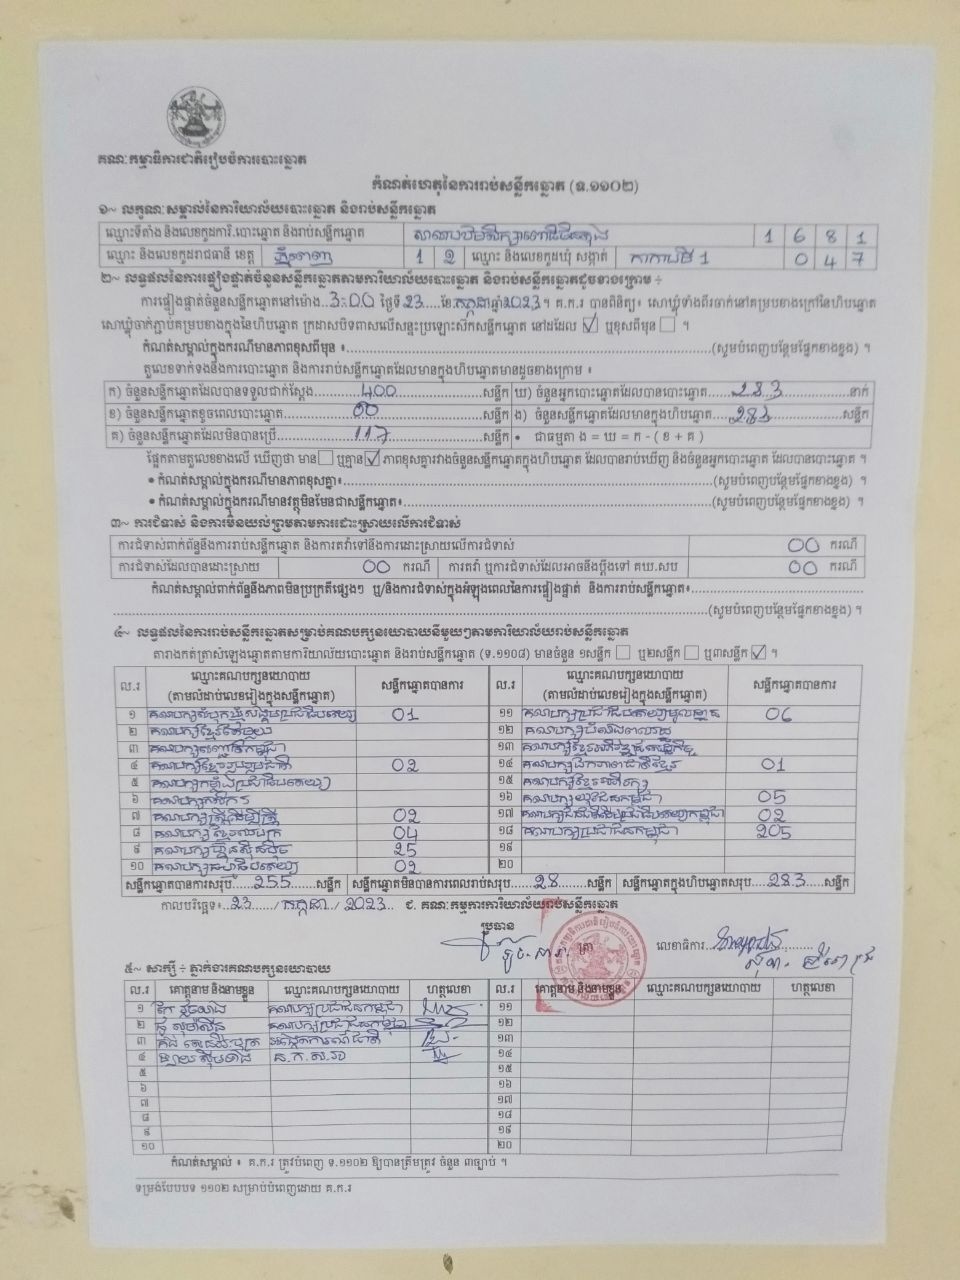 គណៈកម្មាធិការជាតិរៀបចំការបោះឆ្នោត
កំណត់ហេតុនៃការរាប់សន្លឹកឆ្នោត (ទ.១១០២)
១~ លក្ខណៈសម្គាល់នៃការិយាល័យបោះឆ្នោត និងរាប់សន្លឹកឆ្នោត
ឈ្មោះទីតាំង និងលេខកូដការិ.បោះឆ្នោត និងរាប់សន្លឹកឆ្នោត 1 6 8 1
ឈ្មោះ និងលេខកូដរាជធានី ខេត្ត ភ្នំពេញ 1 2 ឈ្មោះ និងលេខកូដឃុំ សង្កាត់ កាកាបទី 1 0 4 7
២~ លទ្ធផលនៃការផ្ទៀងផ្ទាត់ចំនួនសន្លឹកឆ្នោតតាមការិយាល័យបោះឆ្នោត និងរាប់សន្លឹកឆ្នោតដូចខាងក្រោម ÷
ការផ្ទៀងផ្ទាត់ចំនួនសន្លឹកឆ្នោតនៅម៉ោង..3:00 ថ្ងៃទី.23...ខែ.កក្កដា.ឆ្នាំ2023។ គ.ក.រ បានពិនិត្យ៖ សោឃ្លុំទាំងពីរចាក់នៅគម្របខាងក្រៅនៃហិបឆ្នោត
សោឃ្លុំចាក់ភ្ជាប់គម្របខាងក្នុងនៃហិបឆ្នោត ក្រដាសបិទពាសលើសន្ទះប្រឡោះស៊កសន្លឹកឆ្នោត នៅដដែល ☑ ឬខុសពីមុន ☐ ។
កំណត់សម្គាល់ក្នុងករណីមានភាពខុសពីមុន ៖...(សូមបំពេញបន្ថែមផ្នែកខាងខ្នង) ។
តួលេខទាក់ទងនឹងការបោះឆ្នោត និងការរាប់សន្លឹកឆ្នោតដែលមានក្នុងហិបឆ្នោតមានដូចខាងក្រោម ៖
ក) ចំនួនសន្លឹកឆ្នោតដែលបានទទួលជាក់ស្តែង...400...សន្លឹក ឃ) ចំនួនអ្នកបោះឆ្នោតដែលបានបោះឆ្នោត...283...នាក់
ខ) ចំនួនសន្លឹកឆ្នោតខូចពេលបោះឆ្នោត...00...សន្លឹក ង) ចំនួនសន្លឹកឆ្នោតដែលមានក្នុងហិបឆ្នោត...283...សន្លឹក
គ) ចំនួនសន្លឹកឆ្នោតដែលមិនបានប្រើ...117...សន្លឹក • ជាធម្មតា ង = ឃ = ក - ( ខ + គ )
ផ្អែកតាមតួលេខខាងលើ ឃើញថា មាន ☐ ឬគ្មាន ☑ ភាពខុសគ្នារវាងចំនួនសន្លឹកឆ្នោតក្នុងហិបឆ្នោត ដែលបានរាប់ឃើញ និងចំនួនអ្នកបោះឆ្នោត ដែលបានបោះឆ្នោត ។
• កំណត់សម្គាល់ក្នុងករណីមានភាពខុសគ្នា៖...(សូមបំពេញបន្ថែមផ្នែកខាងខ្នង) ។
• កំណត់សម្គាល់ក្នុងករណីមានវត្ថុមិនមែនជាសន្លឹកឆ្នោត៖...(សូមបំពេញបន្ថែមផ្នែកខាងខ្នង) ។
៣~ ការជំទាស់ និងការមិនយល់ព្រមតាមការដោះស្រាយលើការជំទាស់
ការជំទាស់ពាក់ព័ន្ធនឹងការរាប់សន្លឹកឆ្នោត និងការតវ៉ាទៅនឹងការដោះស្រាយលើការជំទាស់ 00 ករណី
ការជំទាស់ដែលបានដោះស្រាយ 00 ករណី ការតវ៉ា ឬការជំទាស់ដែលអាចនឹងប្តឹងទៅ គឃ.សប 00 ករណី
កំណត់សម្គាល់ពាក់ព័ន្ធនឹងភាពមិនប្រក្រតីផ្សេងៗ ឬ/និងការជំទាស់ក្នុងអំឡុងពេលនៃការផ្ទៀងផ្ទាត់ និងការរាប់សន្លឹកឆ្នោត៖...
...(សូមបំពេញបន្ថែមផ្នែកខាងខ្នង) ។
៤~ លទ្ធផលនៃការរាប់សន្លឹកឆ្នោតសម្រាប់គណបក្សនយោបាយនីមួយៗតាមការិយាល័យរាប់សន្លឹកឆ្នោត
តារាងកត់ត្រាសំឡេងឆ្នោតតាមការិយាល័យបោះឆ្នោត និងរាប់សន្លឹកឆ្នោត (ទ.១១០៨) មានចំនួន ១សន្លឹក ☐ ឬ២សន្លឹក ☐ ឬ៣សន្លឹក ☑ ។
ល.រ ឈ្មោះគណបក្សនយោបាយ (តាមលំដាប់លេខរៀងក្នុងសន្លឹកឆ្នោត) សន្លឹកឆ្នោតបានការ ល.រ ឈ្មោះគណបក្សនយោបាយ (តាមលំដាប់លេខរៀងក្នុងសន្លឹកឆ្នោត) សន្លឹកឆ្នោតបានការ
១ គណបក្សសំបុកឃ្មុំសង្គមប្រជាធិបតេយ្យ 01 ១១ គណបក្សប្រជាធិបតេយ្យមូលដ្ឋាន 06
២ គណបក្សខ្មែរតែមួយ ១២
៣ គណបក្ស ១៣ គណបក្សខ្មែរអភិវឌ្ឍន៍សេដ្ឋកិច្ច
៤ គណបក្សខ្មែររួបរួមជាតិ 02 ១៤ គណបក្សឯកភាពជាតិខ្មែរ 01
៥ គណបក្សកម្លាំងប្រជាធិបតេយ្យ ១៥ គណបក្សខ្មែរអភិរក្ស
៦ គណបក្សកសិករ ១៦ គណបក្សយុវជនកម្ពុជា 05
៧ គណបក្សស្ត្រីដើម្បីស្ត្រី 02 ១៧ 02
៨ គណបក្សខ្មែរឈប់ក្រ 04 ១៨ គណបក្សប្រជាជនកម្ពុជា 205
៩ គណបក្សហ៊្វុនស៊ិនប៉ិច 25 ១៩
១០ គណបក្សធម្មាធិបតេយ្យ 02 ២០
សន្លឹកឆ្នោតបានការសរុប...255...សន្លឹក សន្លឹកឆ្នោតមិនបានការពេលរាប់សរុប...28...សន្លឹក សន្លឹកឆ្នោតក្នុងហិបឆ្នោតសរុប...283...សន្លឹក
កាលបរិច្ឆេទ៖..23...../ កក្កដា / 2023.. ជ. គណៈកម្មការការិយាល័យរាប់សន្លឹកឆ្នោត
ប្រធាន ត្រា លេខាធិការ
៥~ សាក្សី ÷ ភ្នាក់ងារគណបក្សនយោបាយ
ល.រ គោត្តនាម និងនាមខ្លួន ឈ្មោះគណបក្សនយោបាយ ហត្ថលេខា ល.រ គោត្តនាម និងនាមខ្លួន ឈ្មោះគណបក្សនយោបាយ ហត្ថលេខា
១ គណបក្សប្រជាជនកម្ពុជា ១១
២ គណបក្សប្រជាជនកម្ពុជា ១២
៣ ១៣
៤ ១៤
៥ ១៥
៦ ១៦
៧ ១៧
៨ ១៨
៩ ១៩
១០ ២០
កំណត់សម្គាល់ ៖ គ.ក.រ ត្រូវបំពេញ ទ.១១០២ ឱ្យបានត្រឹមត្រូវ ចំនួន ៣ច្បាប់ ។
ទម្រង់បែបបទ ១១០២ សម្រាប់បំពេញដោយ គ.ក.រ